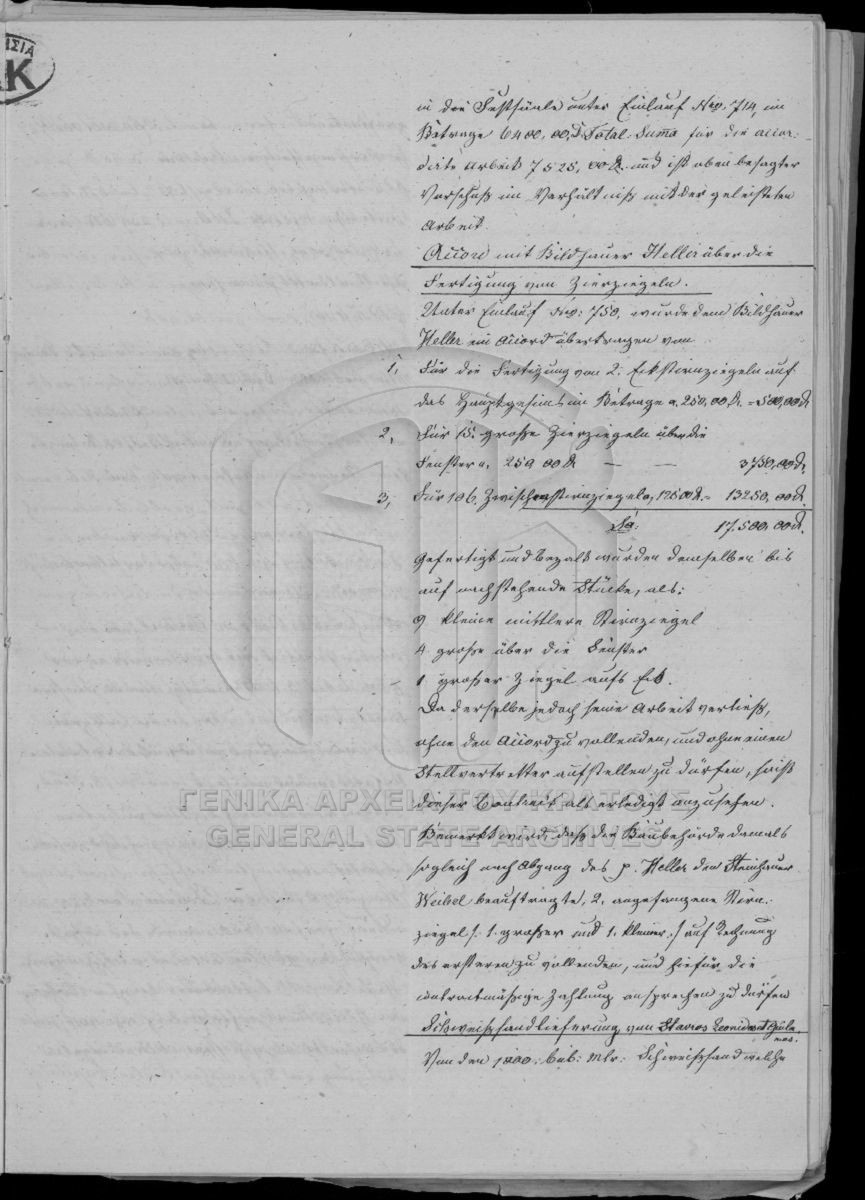 ΗΣΙΑ
ΑΚ
in die Festsäale unter Einlauf Nro. 714, im
Betrage 6400,00 D. Total-Suma für die accor-
dirte Arbeit 7525,00 D. und ist oben besagter
Vorschuß im Verhältniß mit der geleisteten
Arbeit.
Accord mit Bildhauer Heller über die
Fertigung von Zierziegeln.
Unter Einlauf Nro: 750, wurde dem Bildhauer
Heller im Accord übertragen von
1, Für die Fertigung von 2. Eckstirnziegeln auf
das Hauptgesims im Betrage a. 250,00 D. = 500,00 D.
2, Für 15. große Zierziegeln über die
Fenster a. 250 00 D — — 3750,00 D.
3, Für 106. Zwischenstirnziegel a, 125 00 D. = 13250,00 D.
Sa: 17.500,00 D.
Gefertigt und bezalt wurden demselben bis
auf nachstehende Stücke, als:
9 kleine mittlere Stirnziegel
4 große über die Fenster
1 großer Ziegel aufs Eck.
Da derselbe jedoch seine Arbeit verließ,
ohne den Accord zu vollenden, und ohne einen
Stellvertretter aufstellen zu dürfen, heißt
dieser Contract als erledigt anzusehen.
Bemerkt wird, daß die Baubehörde damals
sogleich nach Abgang des p. Heller den Steinhauer
Weibel beauftragte, 2. angefangene Stirn-
ziegel /: 1. großer und 1. kleiner :/ auf Rechnung
des ersteren zu vollenden, und hiefür die
contractmäßige Zahlung ansprechen zu dürfen
Schweißsandlieferung von Stavros Leonidas et
nos.
Von den 1000. Cub: Mtr: Schweißsand welche
ΓΕΝΙΚΑ ΑΡΧΕΙΑ ΤΟΥ ΚΡΑΤΟΥΣ
GENERAL STATE ARCHIVES